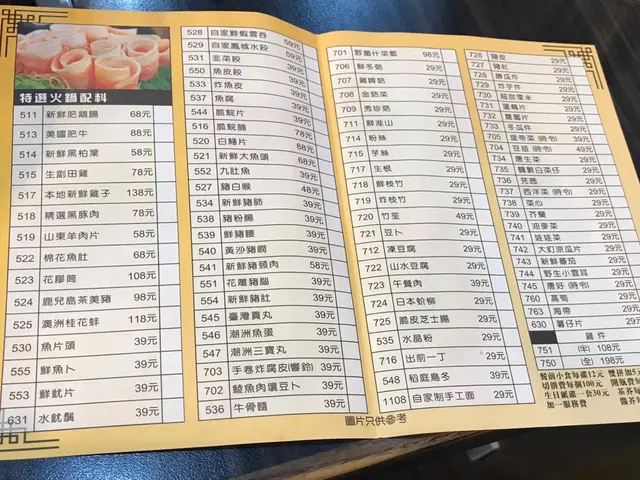 特選火鍋配料
511 新鮮肥鵝腸 68元
513 美國肥牛 88元
514 新鮮黑柏葉 58元
515 生劏田雞 78元
517 本地新鮮雞子 138元
518 精選黑豚肉 78元
519 山東羊肉片 58元
522 棉花魚肚 68元
523 花膠筒 108元
524 鹿兒島茶美豬 98元
525 澳洲桂花蚌 118元
530 魚片頭 39元
555 鮮魚卜 39元
553 鮮魷片 39元
631 水魷鬚 39元
528 自家鮮蝦雲吞 59元
529 自家鳳城水餃 59元
531 韭菜餃
550 魚皮餃 39元
533 炸魚皮 39元
537 魚腐 39元
544 脆鯇片 39元
516 脆鯇腩 78元
520 白鱔片 88元
521 新鮮大魚頭 68元
552 九肚魚 39元
527 豬白喉 48元
534 新鮮豬肺 39元
538 豬粉腸 39元
539 鮮豬腰 39元
540 黃沙豬膶 39元
541 新鮮豬頸肉 58元
551 花雕豬腦 39元
554 新鮮豬肚 39元
545 臺灣貢丸 39元
546 潮洲魚蛋 39元
547 潮洲三寶丸 39元
703 手卷炸腐皮(響鈴) 39元
702 鯪魚肉釀豆卜 39元
536 牛骨髓 39元
701 野菌什菜籃 98元
706 鮮冬菇 29元
707 雞脾菇 29元
708 金菇菜 29元
709 秀珍菇 29元
711 鮮淮山 29元
714 粉絲 29元
715 芋絲 29元
717 生根 29元
718 鮮枝竹 29元
719 炸枝竹 29元
720 竹笙 49元
721 豆卜 29元
712 凍豆腐 29元
722 山水豆腐 29元
723 午餐肉 39元
724 日本蛤柳 29元
725 脆皮芝士腸 29元
535 水晶粉 29元
716 出前一丁 29元
548 稻庭烏冬 39元
1108 自家制手工面 29元
29元
727 豬紅 29元
29元
729 炸芋件 29元
730 29元
731 29元
732 蘿蔔片 29元
733 冬瓜件 29元
705 皇帝菜(時令) 39元
704 豆苗(時令) 49元
734 唐生菜 29元
735 29元
736 29元
737 西洋菜(時令) 29元
738 菜心 29元
739 芥蘭 29元
740 油麥菜 29元
741 娃娃菜 29元
742 大釘涼瓜片 29元
743 新鮮蕃茄 29元
744 野生小雲耳 29元
745 唐好(時令) 29元
760 茼蒿 29元
763 海帶 29元
630 薯仔片 29元
雞件
751 (半) 108元
750 (隻) 198元
餐前小食每碟12元
切餅費每個100元
生日紙碟一套30元
加一服務費
圖片只供參考